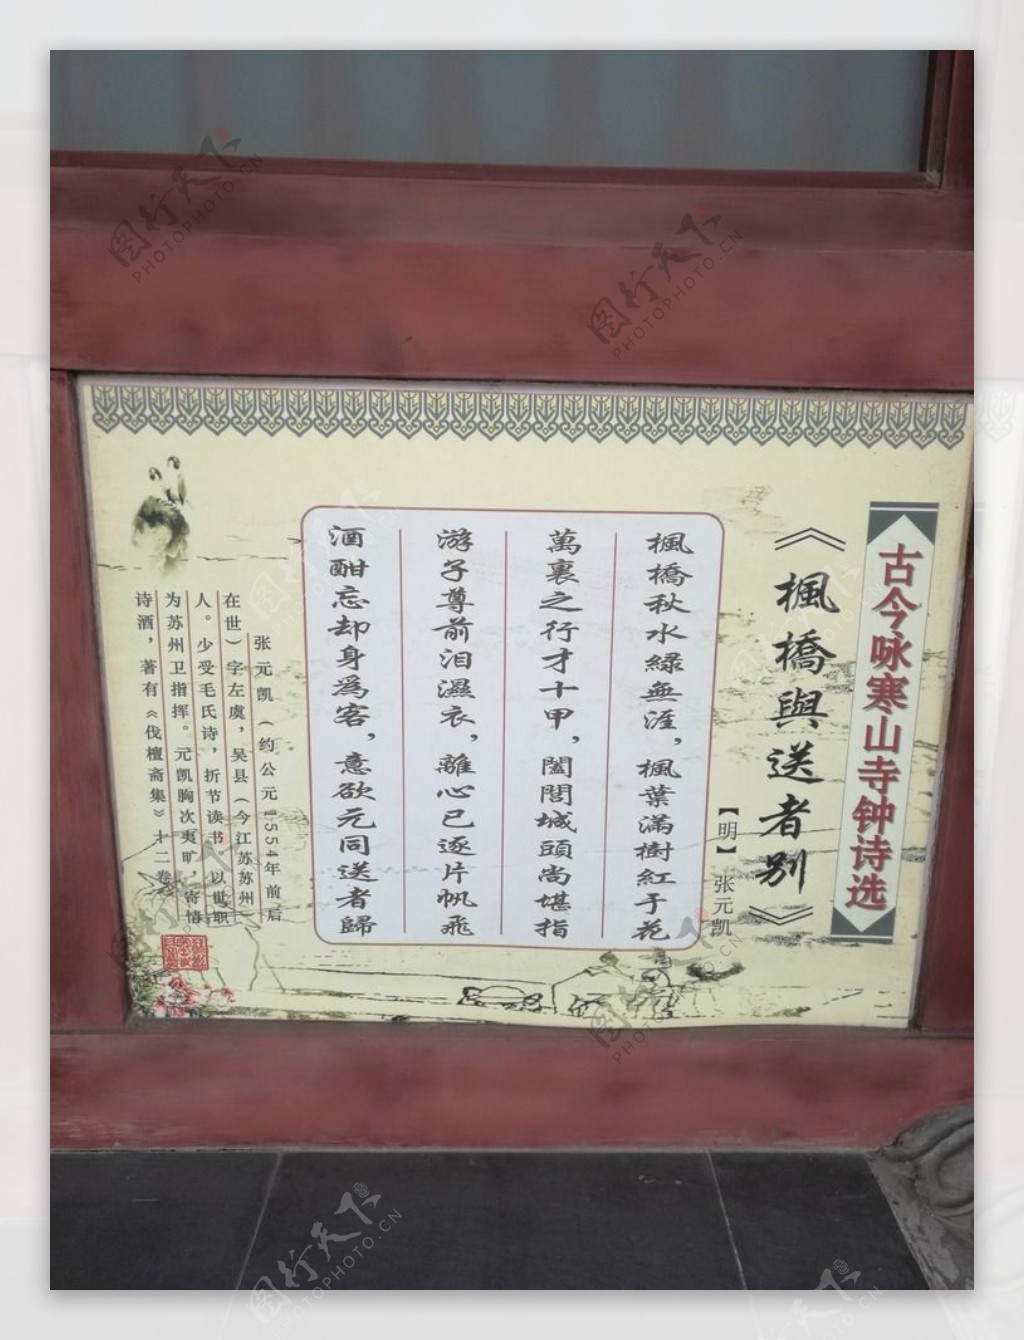 古今咏寒山寺钟诗选
《楓橋與送者别》
【明】 张元凯
楓橋秋水緑無涯，楓葉滿樹紅于花
萬裏之行才十甲，闔閭城頭尚堪指
游子尊前泪濕衣，離心已逐片帆飛
酒酣忘却身為客，意欲元同送者歸
张元凯（约公元1554年前后
在世）字左虞，吴县（今江苏苏州）
人。少受毛氏诗，折节读书 以世职
为苏州卫指挥。元凯胸次夷旷，寄情
诗酒，著有《伐檀斋集》十二卷。
图行天下
PHOTOPHOTO.CN